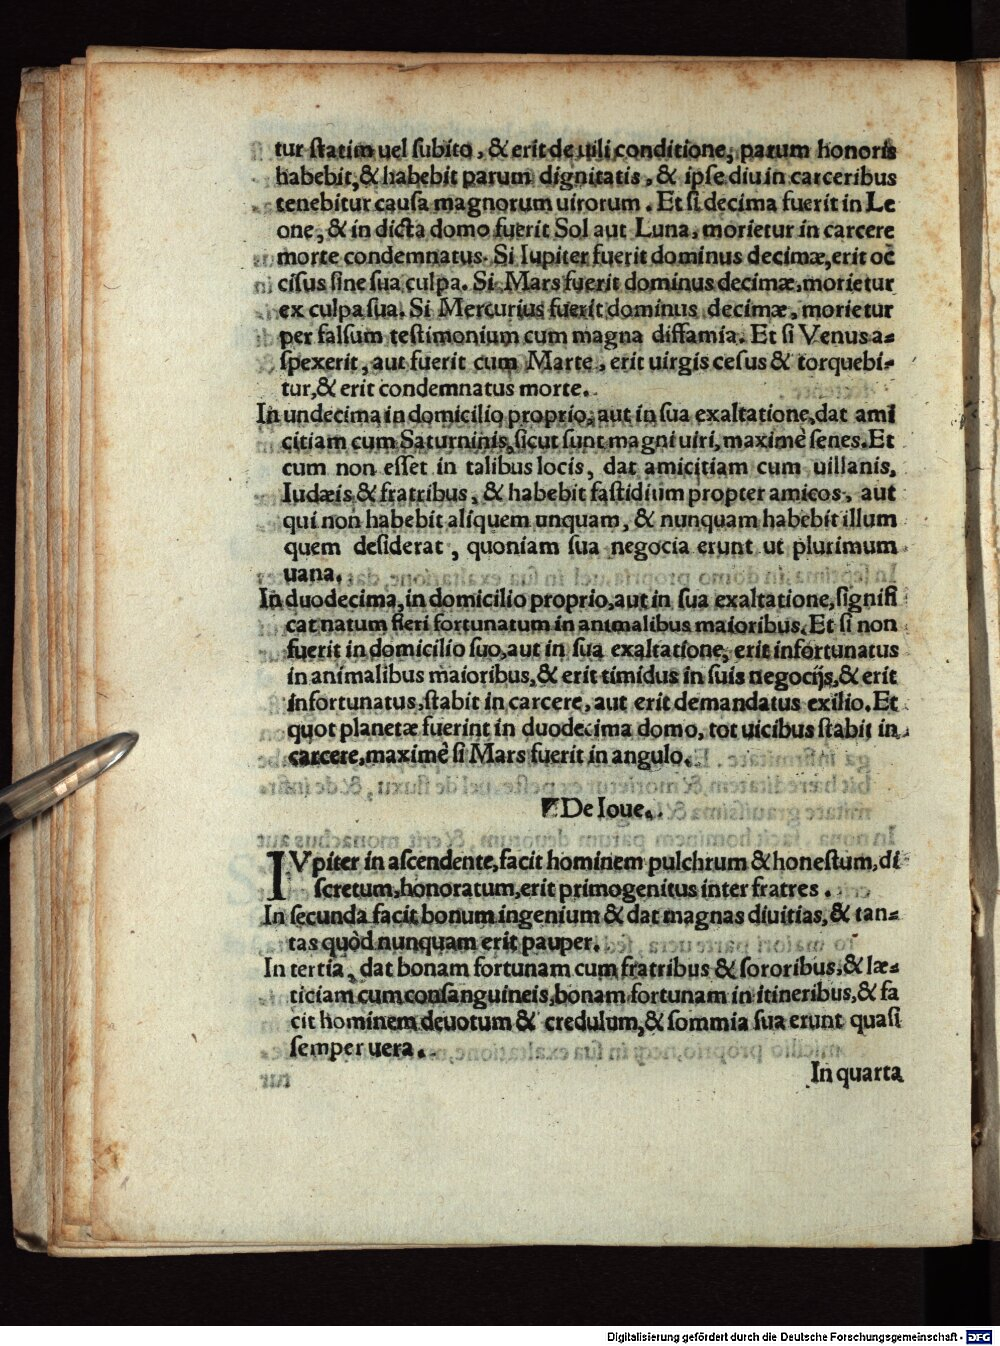 tur ſtatim uel ſubito, & erit de uili conditione, parum honoris
habebit, & habebit parum dignitatis, & ipſe diu in carceribus
tenebitur cauſa magnorum uirorum. Et ſi decima fuerit in Le
one, & in dicta domo fuerit Sol aut Luna, morietur in carcere
morte condemnatus. Si Iupiter fuerit dominus decimæ, erit oc
ciſus ſine ſua culpa. Si Mars fuerit dominus decimæ, morietur
ex culpa ſua. Si Mercurius fuerit dominus decimæ, morietur
per falſum teſtimonium cum magna diffamia. Et ſi Venus a=
ſpexerit, aut fuerit cum Marte, erit uirgis ceſus & torquebi-
tur, & erit condemnatus morte.
In undecima in domicilio proprio, aut in ſua exaltatione, dat ami
citiam cum Saturninis, ſicut ſunt magni uiri, maximè ſenes. Et
cum non eſſet in talibus locis, dat amicitiam cum uillanis,
Iudæis & fratribus, & habebit faſtidium propter amicos, aut
qui non habebit aliquem unquam, & nunquam habebit illum
quem deſiderat, quoniam ſua negocia erunt ut plurimum
uana.
In duodecima, in domicilio proprio, aut in ſua exaltatione, ſignifi
cat natum fieri fortunatum in animalibus maioribus. Et ſi non
fuerit in domicilio ſuo, aut in ſua exaltatione, erit infortunatus
in animalibus maioribus, & erit timidus in ſuis negocijs, & erit
infortunatus, ſtabit in carcere, aut erit demandatus exilio. Et
quot planetæ fuerint in duodecima domo, tot uicibus ſtabit in
carcere, maximè ſi Mars fuerit in angulo.
De Ioue.
IVpiter in aſcendente, facit hominem pulchrum & honeſtum, di
ſcretum, honoratum, erit primogenitus inter fratres.
In ſecunda facit bonum ingenium & dat magnas diuitias, & tan=
tas quòd nunquam erit pauper.
In tertia, dat bonam fortunam cum fratribus & ſororibus, & læ=
ticiam cum conſanguineis, bonam fortunam in itineribus, & fa
cit hominem deuotum & credulum, & ſomnia ſua erunt quaſi
ſemper uera.
In quarta
Digitalisierung gefördert durch die Deutsche Forschungsgemeinschaft - DFG